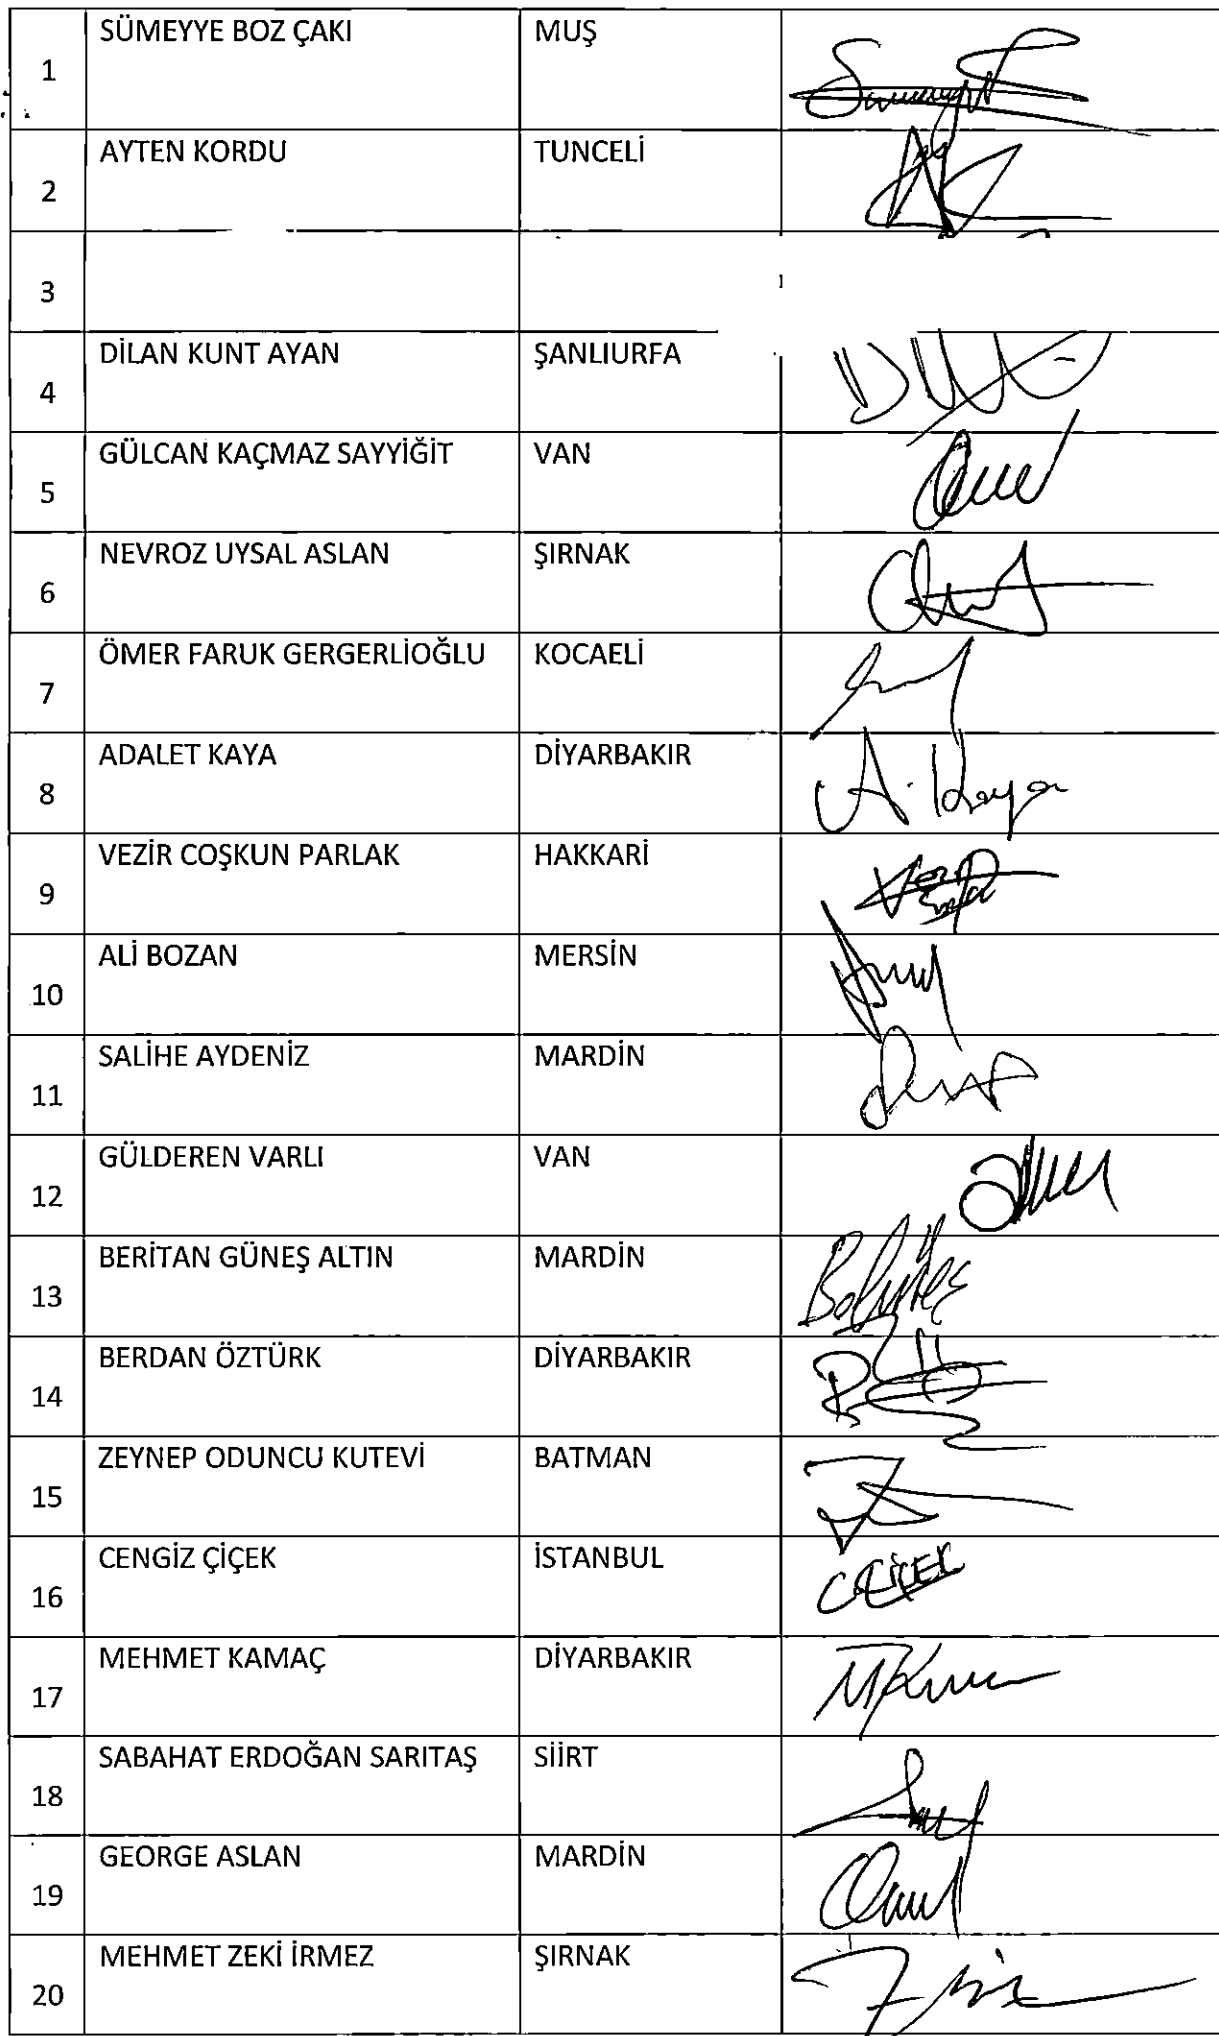 1 SÜMEYYE BOZ ÇAKI MUŞ
2 AYTEN KORDU TUNCELİ
3
4 DİLAN KUNT AYAN ŞANLIURFA
5 GÜLCAN KAÇMAZ SAYYİĞİT VAN
6 NEVROZ UYSAL ASLAN ŞIRNAK
7 ÖMER FARUK GERGERLİOĞLU KOCAELİ
8 ADALET KAYA DİYARBAKIR A. Kaya
9 VEZİR COŞKUN PARLAK HAKKARİ
10 ALİ BOZAN MERSİN
11 SALİHE AYDENİZ MARDİN
12 GÜLDEREN VARLI VAN
13 BERİTAN GÜNEŞ ALTIN MARDİN
14 BERDAN ÖZTÜRK DİYARBAKIR
15 ZEYNEP ODUNCU KUTEVİ BATMAN
16 CENGİZ ÇİÇEK İSTANBUL
17 MEHMET KAMAÇ DİYARBAKIR
18 SABAHAT ERDOĞAN SARITAŞ SİİRT
19 GEORGE ASLAN MARDİN
20 MEHMET ZEKİ İRMEZ ŞIRNAK